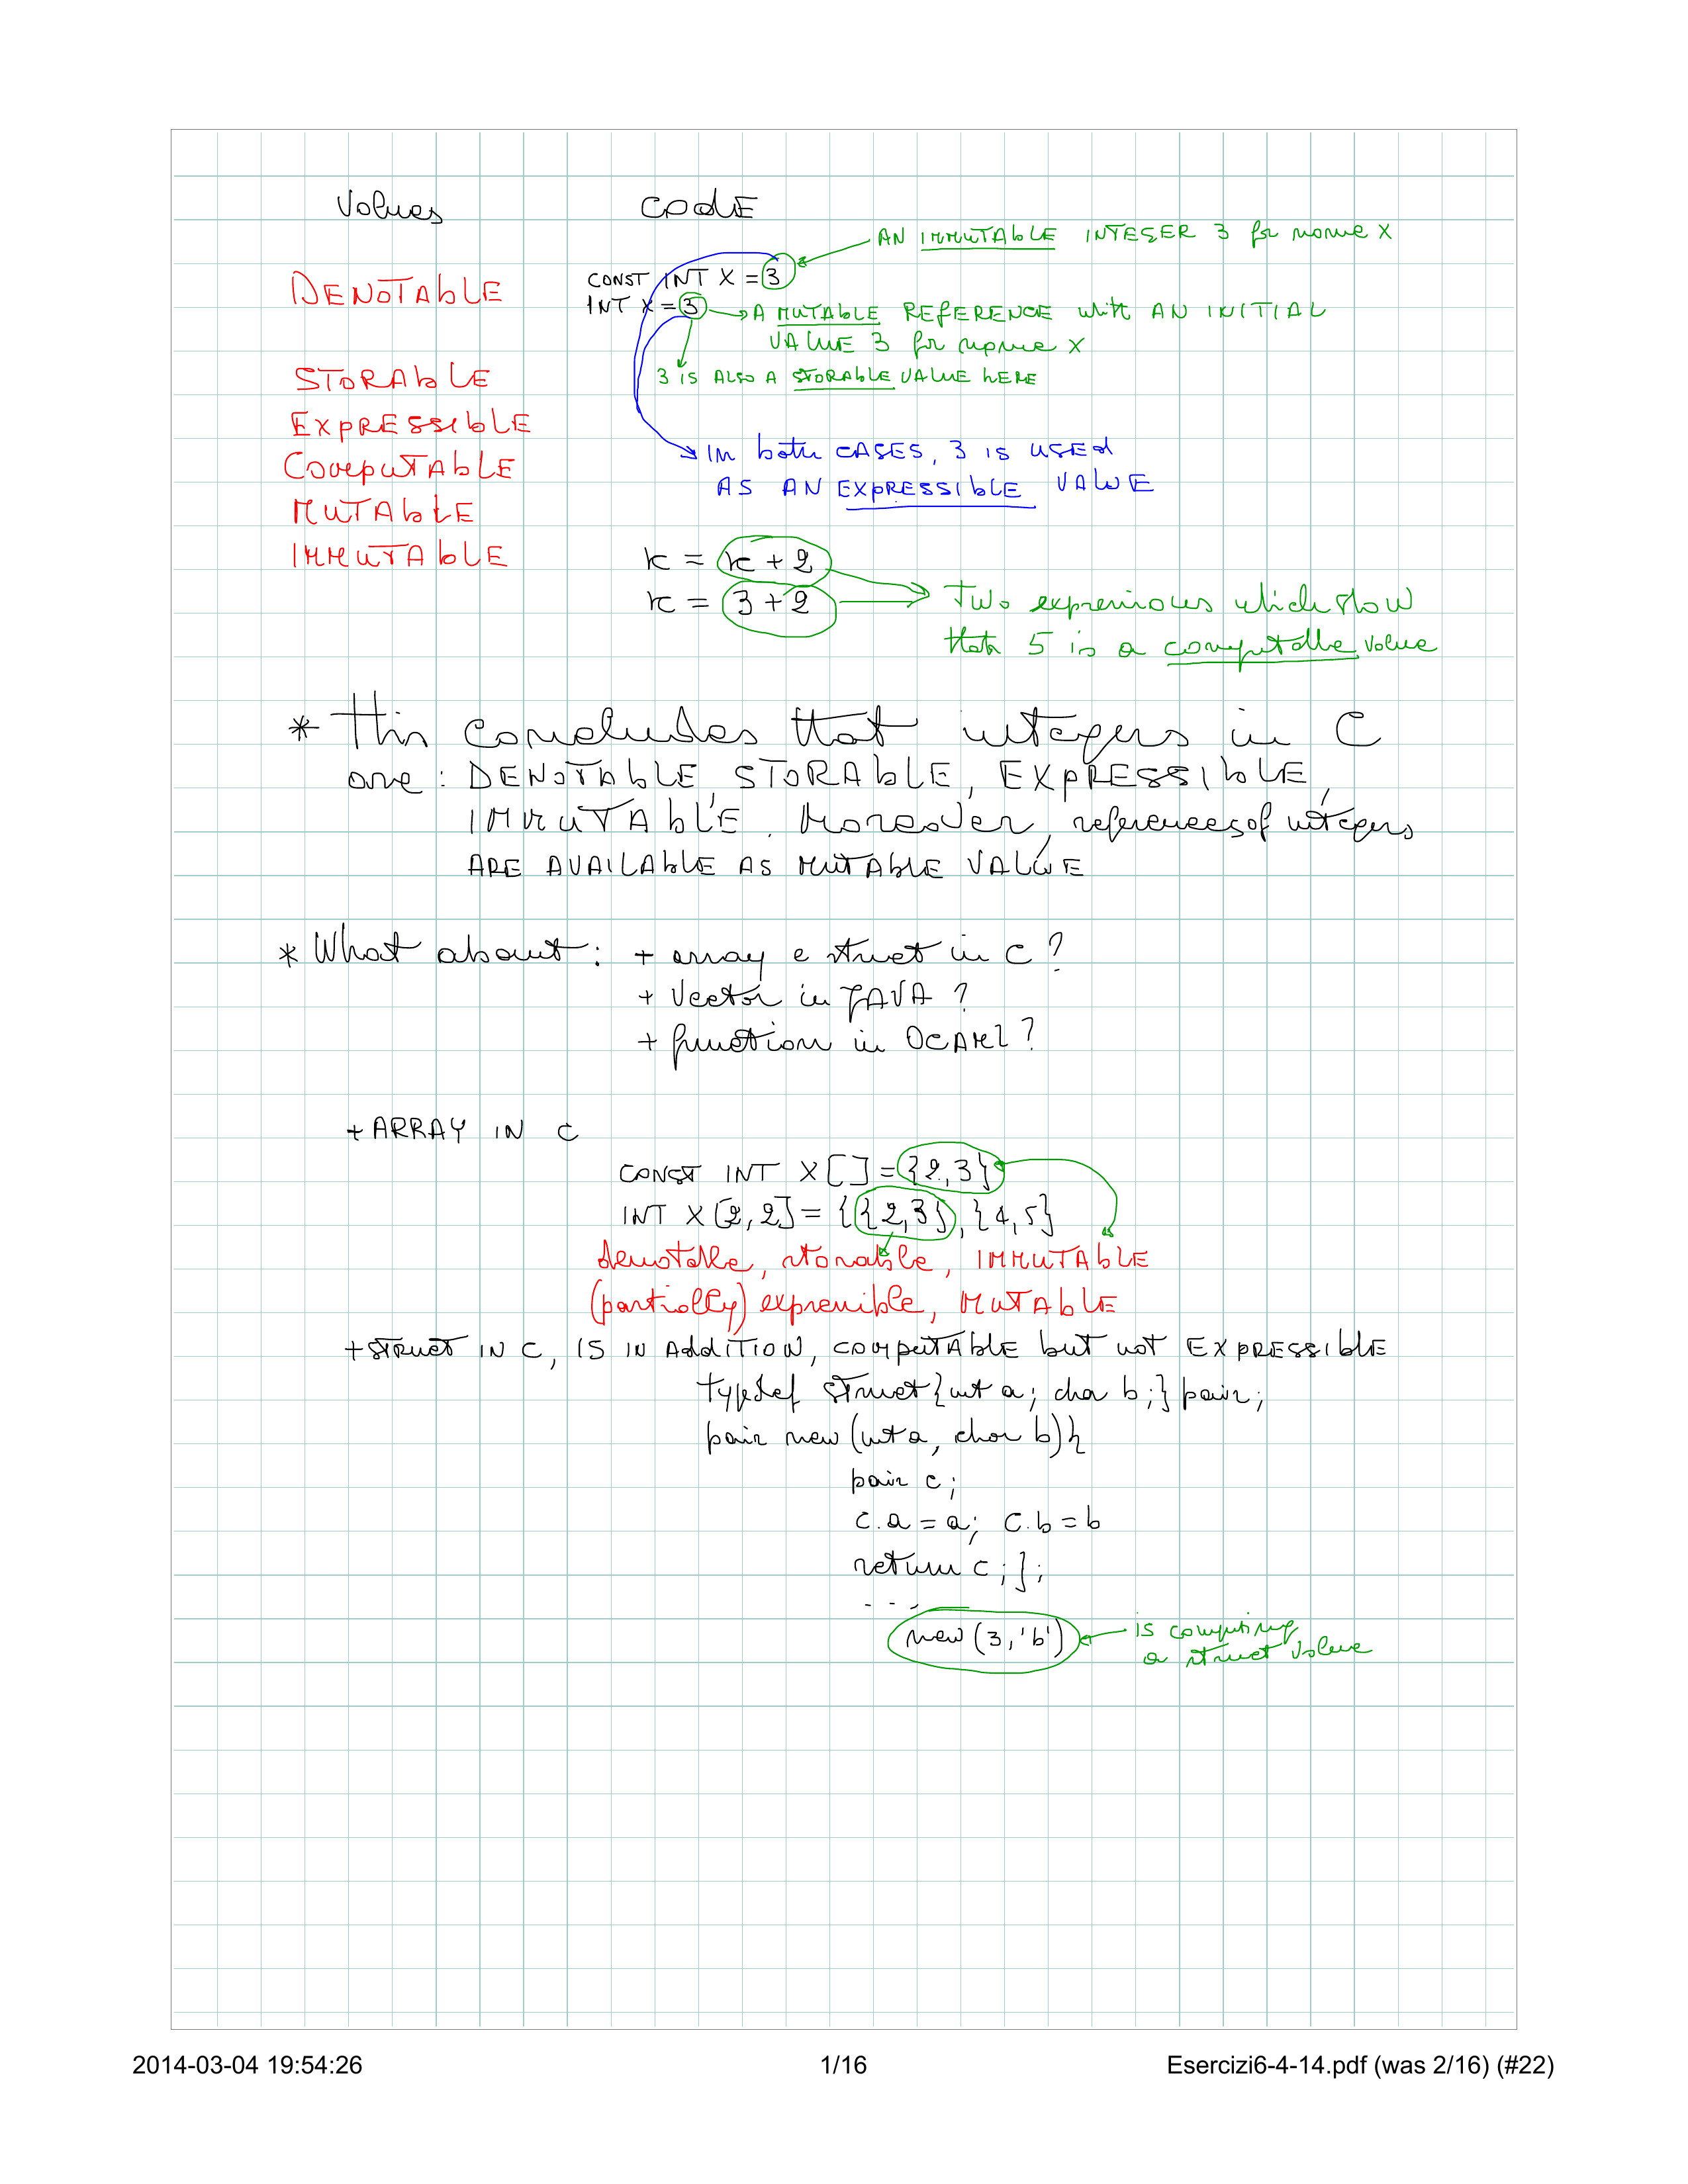 Values CODE
AN IMMUTABLE INTEGER 3 for name X
DENOTABLE
CONST INT X = 3
INT X = 3 A MUTABLE REFERENCE with AN INITIAL
VALUE 3 for name X
STORABLE
3 IS ALSO A STORABLE VALUE HERE
EXPRESSIBLE
In both CASES, 3 IS USED
COMPUTABLE
AS AN EXPRESSIBLE VALUE
MUTABLE
IMMUTABLE
K = K + 2
K = 3 + 2
Two expressions which show
that 5 is a computable value
* This concludes that integers in C
are: DENOTABLE, STORABLE, EXPRESSIBLE,
IMMUTABLE. Moreover, references of integers
ARE AVAILABLE AS MUTABLE VALUE
* What about: + array e struct in C?
+ Vector in JAVA?
+ function in OCAML?
+ ARRAY IN C
CONST INT X[] = {2,3}
INT X[2,2] = {{2,3},{4,5}
denotable, storable, IMMUTABLE
(partially) expressible, MUTABLE
+ STRUCT IN C, IS IN ADDITION, COMPUTABLE but not EXPRESSIBLE
typedef struct{int a; cha b;} pair;
pair new (int a, char b){
pair c;
c.a = a; c.b = b
return c;};
...
new (3,'b') is computing
a struct value
2014-03-04 19:54:26 1/16 Esercizi6-4-14.pdf (was 2/16) (#22)